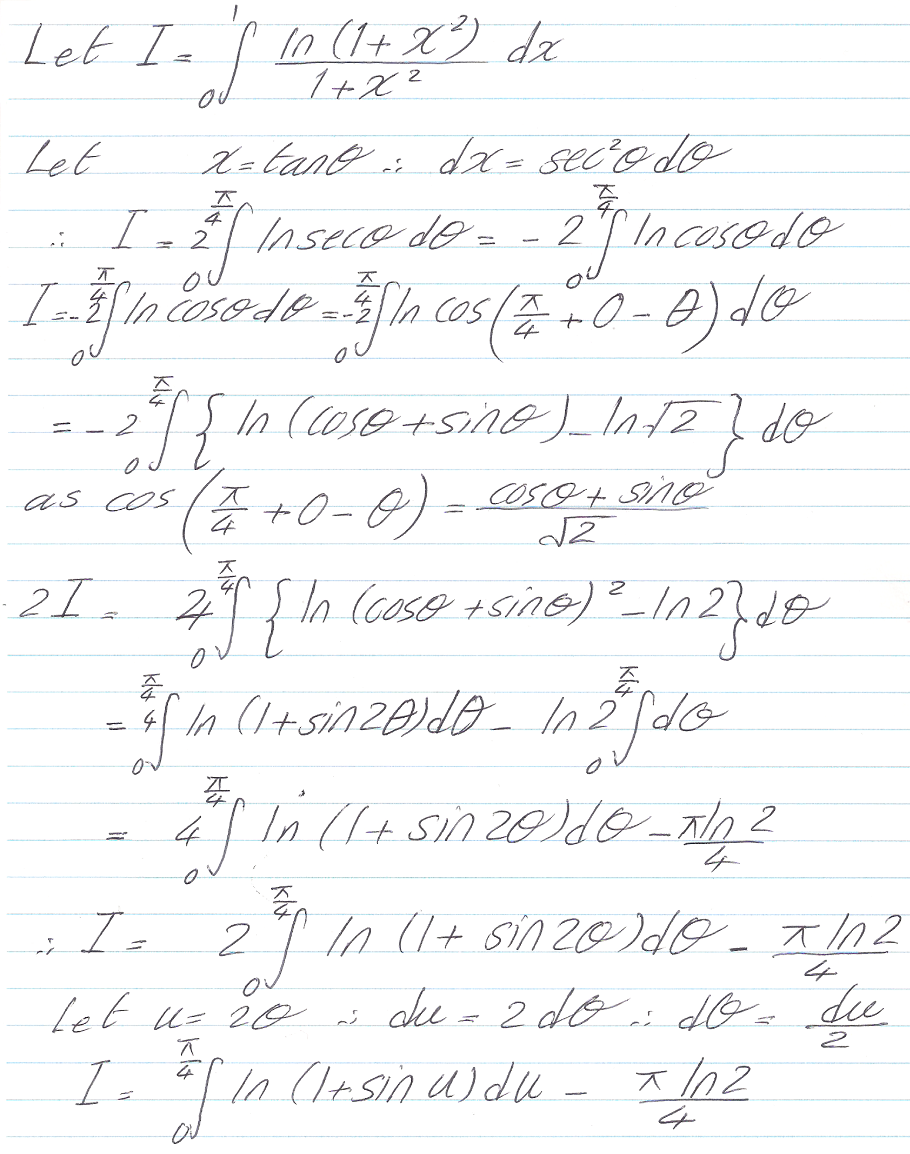 Let I = ∫₀¹ ln(1+x²)/(1+x²) dx
Let x = tanθ ∴ dx = sec²θ dθ
∴ I = 2 ∫₀^(π/4) ln secθ dθ = -2 ∫₀^(π/4) ln cosθ dθ
I = -2 ∫₀^(π/4) ln cosθ dθ = -2 ∫₀^(π/4) ln cos(π/4 + 0 - θ) dθ
= -2 ∫₀^(π/4) { ln(cosθ + sinθ) - ln√2 } dθ
as cos(π/4 + 0 - θ) = (cosθ + sinθ)/√2
2I = 4 ∫₀^(π/4) { ln(cosθ + sinθ)² - ln2 } dθ
= 4 ∫₀^(π/4) ln(1 + sin2θ) dθ - ln2 ∫₀^(π/4) dθ
= 4 ∫₀^(π/4) ln(1 + sin2θ) dθ - πln2/4
∴ I = 2 ∫₀^(π/4) ln(1 + sin2θ) dθ - πln2/4
Let u = 2θ ∴ du = 2dθ ∴ dθ = du/2
I = ∫₀^(π/4) ln(1 + sin u) du - πln2/4